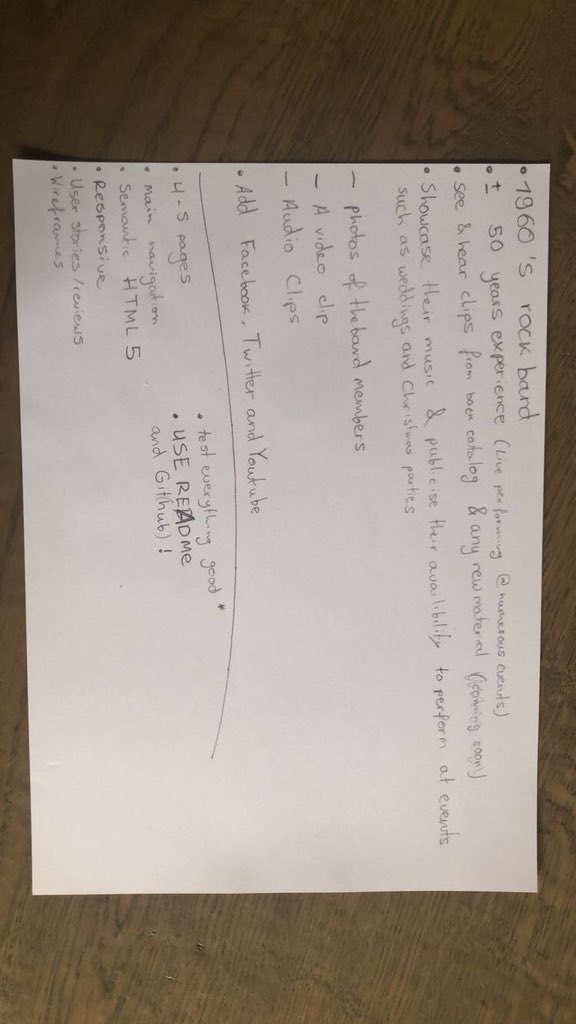 • 1960's rock band
• ± 50 years experience (Live performing @ numerous events)
• see & hear clips from back catalog & any new material (coming soon)
• Showcase their music & publicise their availibility to perform at events
such as weddings and Christmas parties
— photos of the band members
— A video clip
— Audio Clips
• Add Facebook, Twitter and Youtube
• 4-5 pages
• main navigation
• Semantic HTML 5
• Responsive
• User stories/reviews
• Wireframes
• test everything good *
• USE README
and Git(hub)!